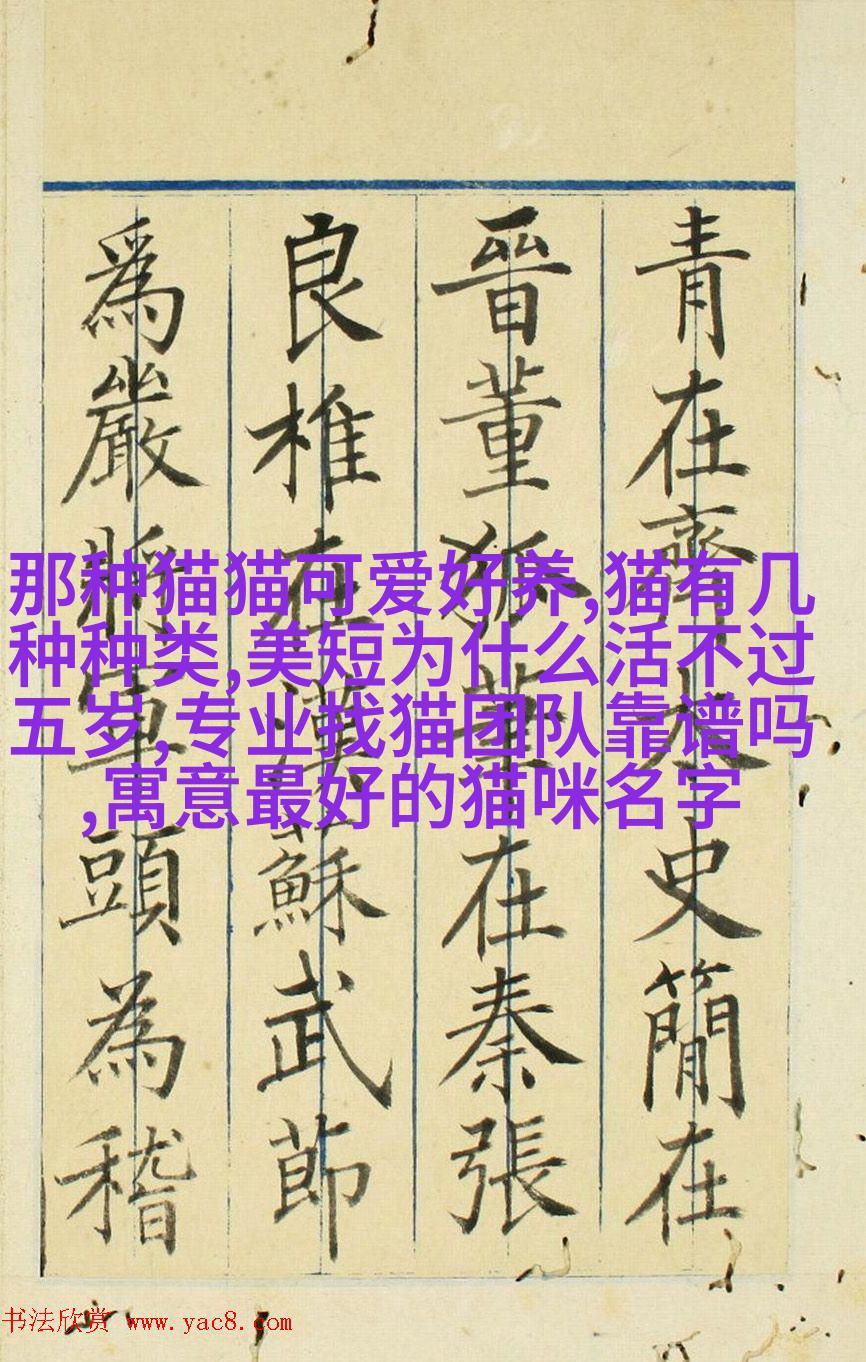 青在齊太史簡在
晉董狐筆在秦張
良椎在漢蘇武節
爲嚴將軍頭為稽
那种猫猫可爱好养,猫有几
种种类,美短为什么活不过
五岁,专业找猫团队靠谱吗
,寓意最好的猫咪名字
书法欣赏 www.yac8.com